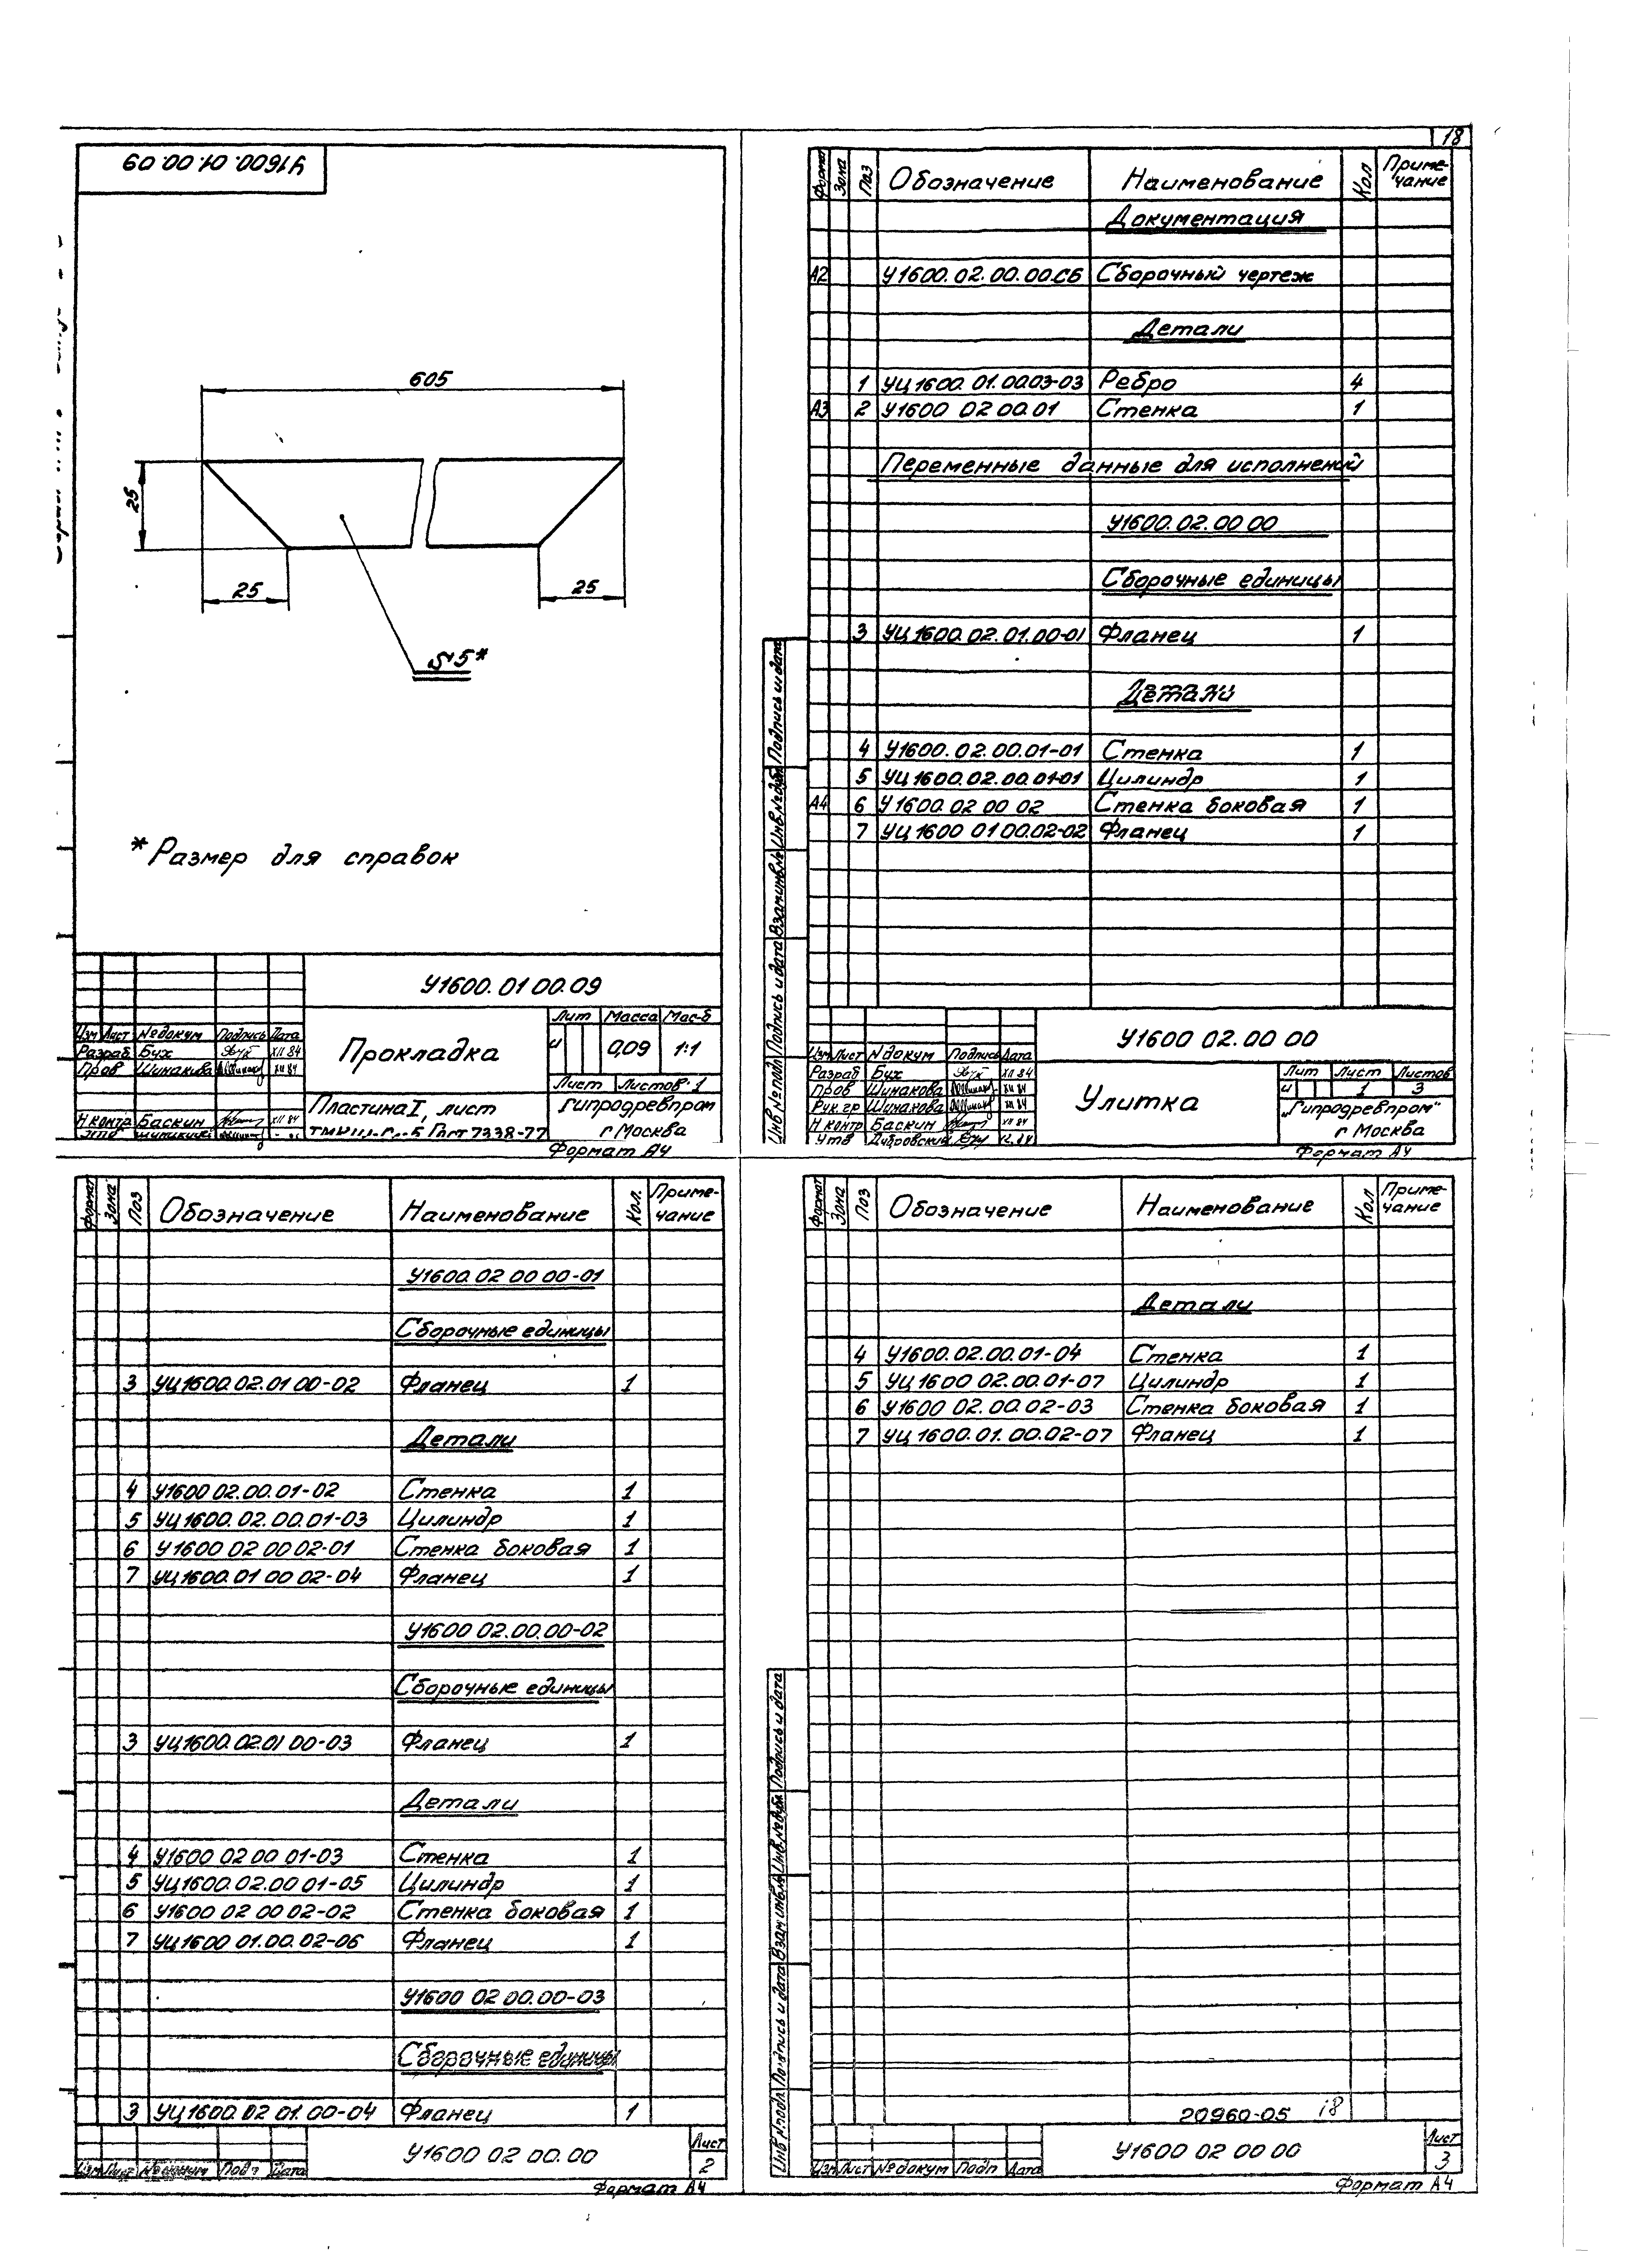 18
У1600.01.00.09
605
25
25
25
S5*
*Размер для справок
У1600.01 00.09
Изм Лист №докум Подпись Дата
Разраб Бух XII 84
Пров Шинакова XII 84
Н контр Баскин XII 84
Прокладка
Лит Масса Мас-б
и 0,09 1:1
Лист Листов 1
Пластина I, лист
Гост 7338-77
Гипродревпром
г Москва
Формат А4
Формат Зона Поз Обозначение Наименование Кол Приме-чание
Документация
А2 У1600.02.00.00.СБ Сборочный чертеж
Детали
1 УЦ1600.01.0003-03 Ребро 4
А3 2 У1600 02 00.01 Стенка 1
Переменные данные для исполнений
У1600.02.00 00
Сборочные единицы
3 УЦ1600.02.01.00-01 Фланец 1
Детали
4 У1600.02.00.01-01 Стенка 1
5 УЦ1600.02.00.01-01 Цилиндр 1
А4 6 У1600.02 00 02 Стенка боковая 1
7 УЦ1600 01 00.02-02 Фланец 1
Инв №подл Подпись и дата Взам инв № Инв № дубл Подпись и дата
У1600 02.00 00
Изм Лист N докум Подпись Дата
Разраб Бух XII 84
Пров Шинакова XII 84
Рук.гр Шинакова XII 84
Н контр Баскин XII 84
Утв Дубровский 12.84
Улитка
Лит Лист Листов
и 1 3
„Гипродревпром"
г Москва
Формат А4
Формат Зона Поз Обозначение Наименование Кол. Приме-чание
У1600.02 00 00-01
Сборочные единицы
3 УЦ1600.02.01 00-02 Фланец 1
Детали
4 У1600 02.00.01-02 Стенка 1
5 УЦ1600.02.00.01-03 Цилиндр 1
6 У1600 02 00 02-01 Стенка боковая 1
7 УЦ1600.01 00 02-04 Фланец 1
У1600 02.00.00-02
Сборочные единицы
3 УЦ1600.02.01 00-03 Фланец 1
Детали
4 У1600 02 00 01-03 Стенка 1
5 УЦ1600.02.00 01-05 Цилиндр 1
6 У1600 02 00 02-02 Стенка боковая 1
7 УЦ1600 01.00.02-06 Фланец 1
У1600 02 00.00-03
Сборочные единицы
3 УЦ1600.02 01.00-04 Фланец 1
У1600 02 00.00
Лист
2
Изм Лист №докум Подп Дата
Формат А4
Формат Зона Поз Обозначение Наименование Кол Приме-чание
Детали
4 У1600.02.00.01-04 Стенка 1
5 УЦ1600 02.00.01-07 Цилиндр 1
6 У1600 02.00.02-03 Стенка боковая 1
7 УЦ1600.01.00.02-07 Фланец 1
20960-05 18
Инв №подл Подпись и дата Взам инв № Инв № дубл Подпись и дата
У1600 02 00 00
Лист
3
Изм Лист №докум Подп Дата
Формат А4